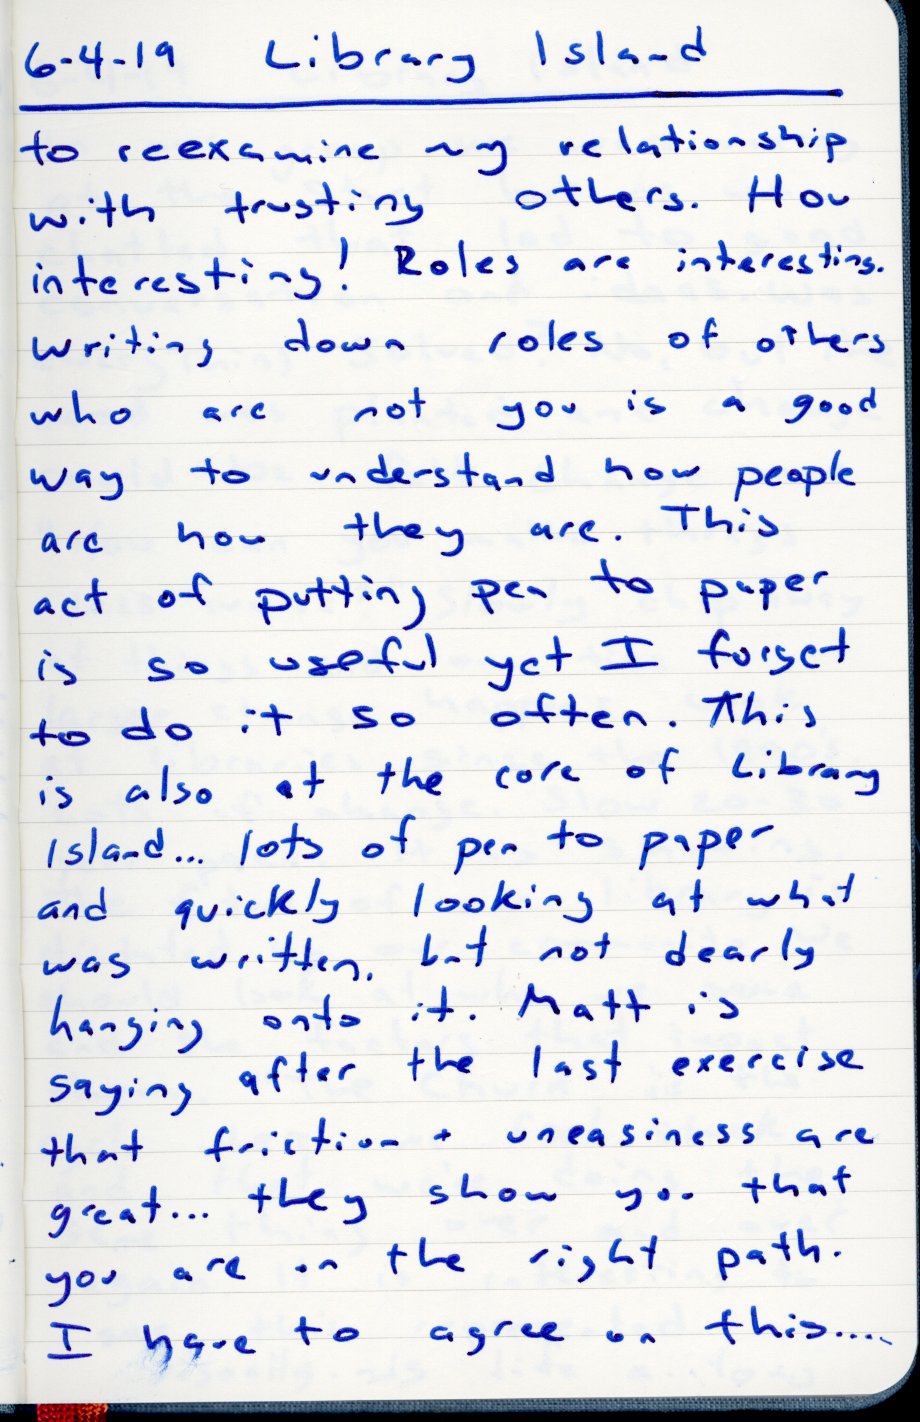 6-4-19 Library Island
to reexamine my relationship
with trusting others. How
interesting! Roles are interesting.
Writing down roles of others
who are not you is a good
way to understand how people
are how they are. This
act of putting pen to paper
is so useful yet I forget
to do it so often. This
is also at the core of Library
Island... lots of pen to paper
and quickly looking at what
was written, but not dearly
hanging onto it. Matt is
saying after the last exercise
that friction + uneasiness are
great... they show you that
you are on the right path.
I have to agree on this....